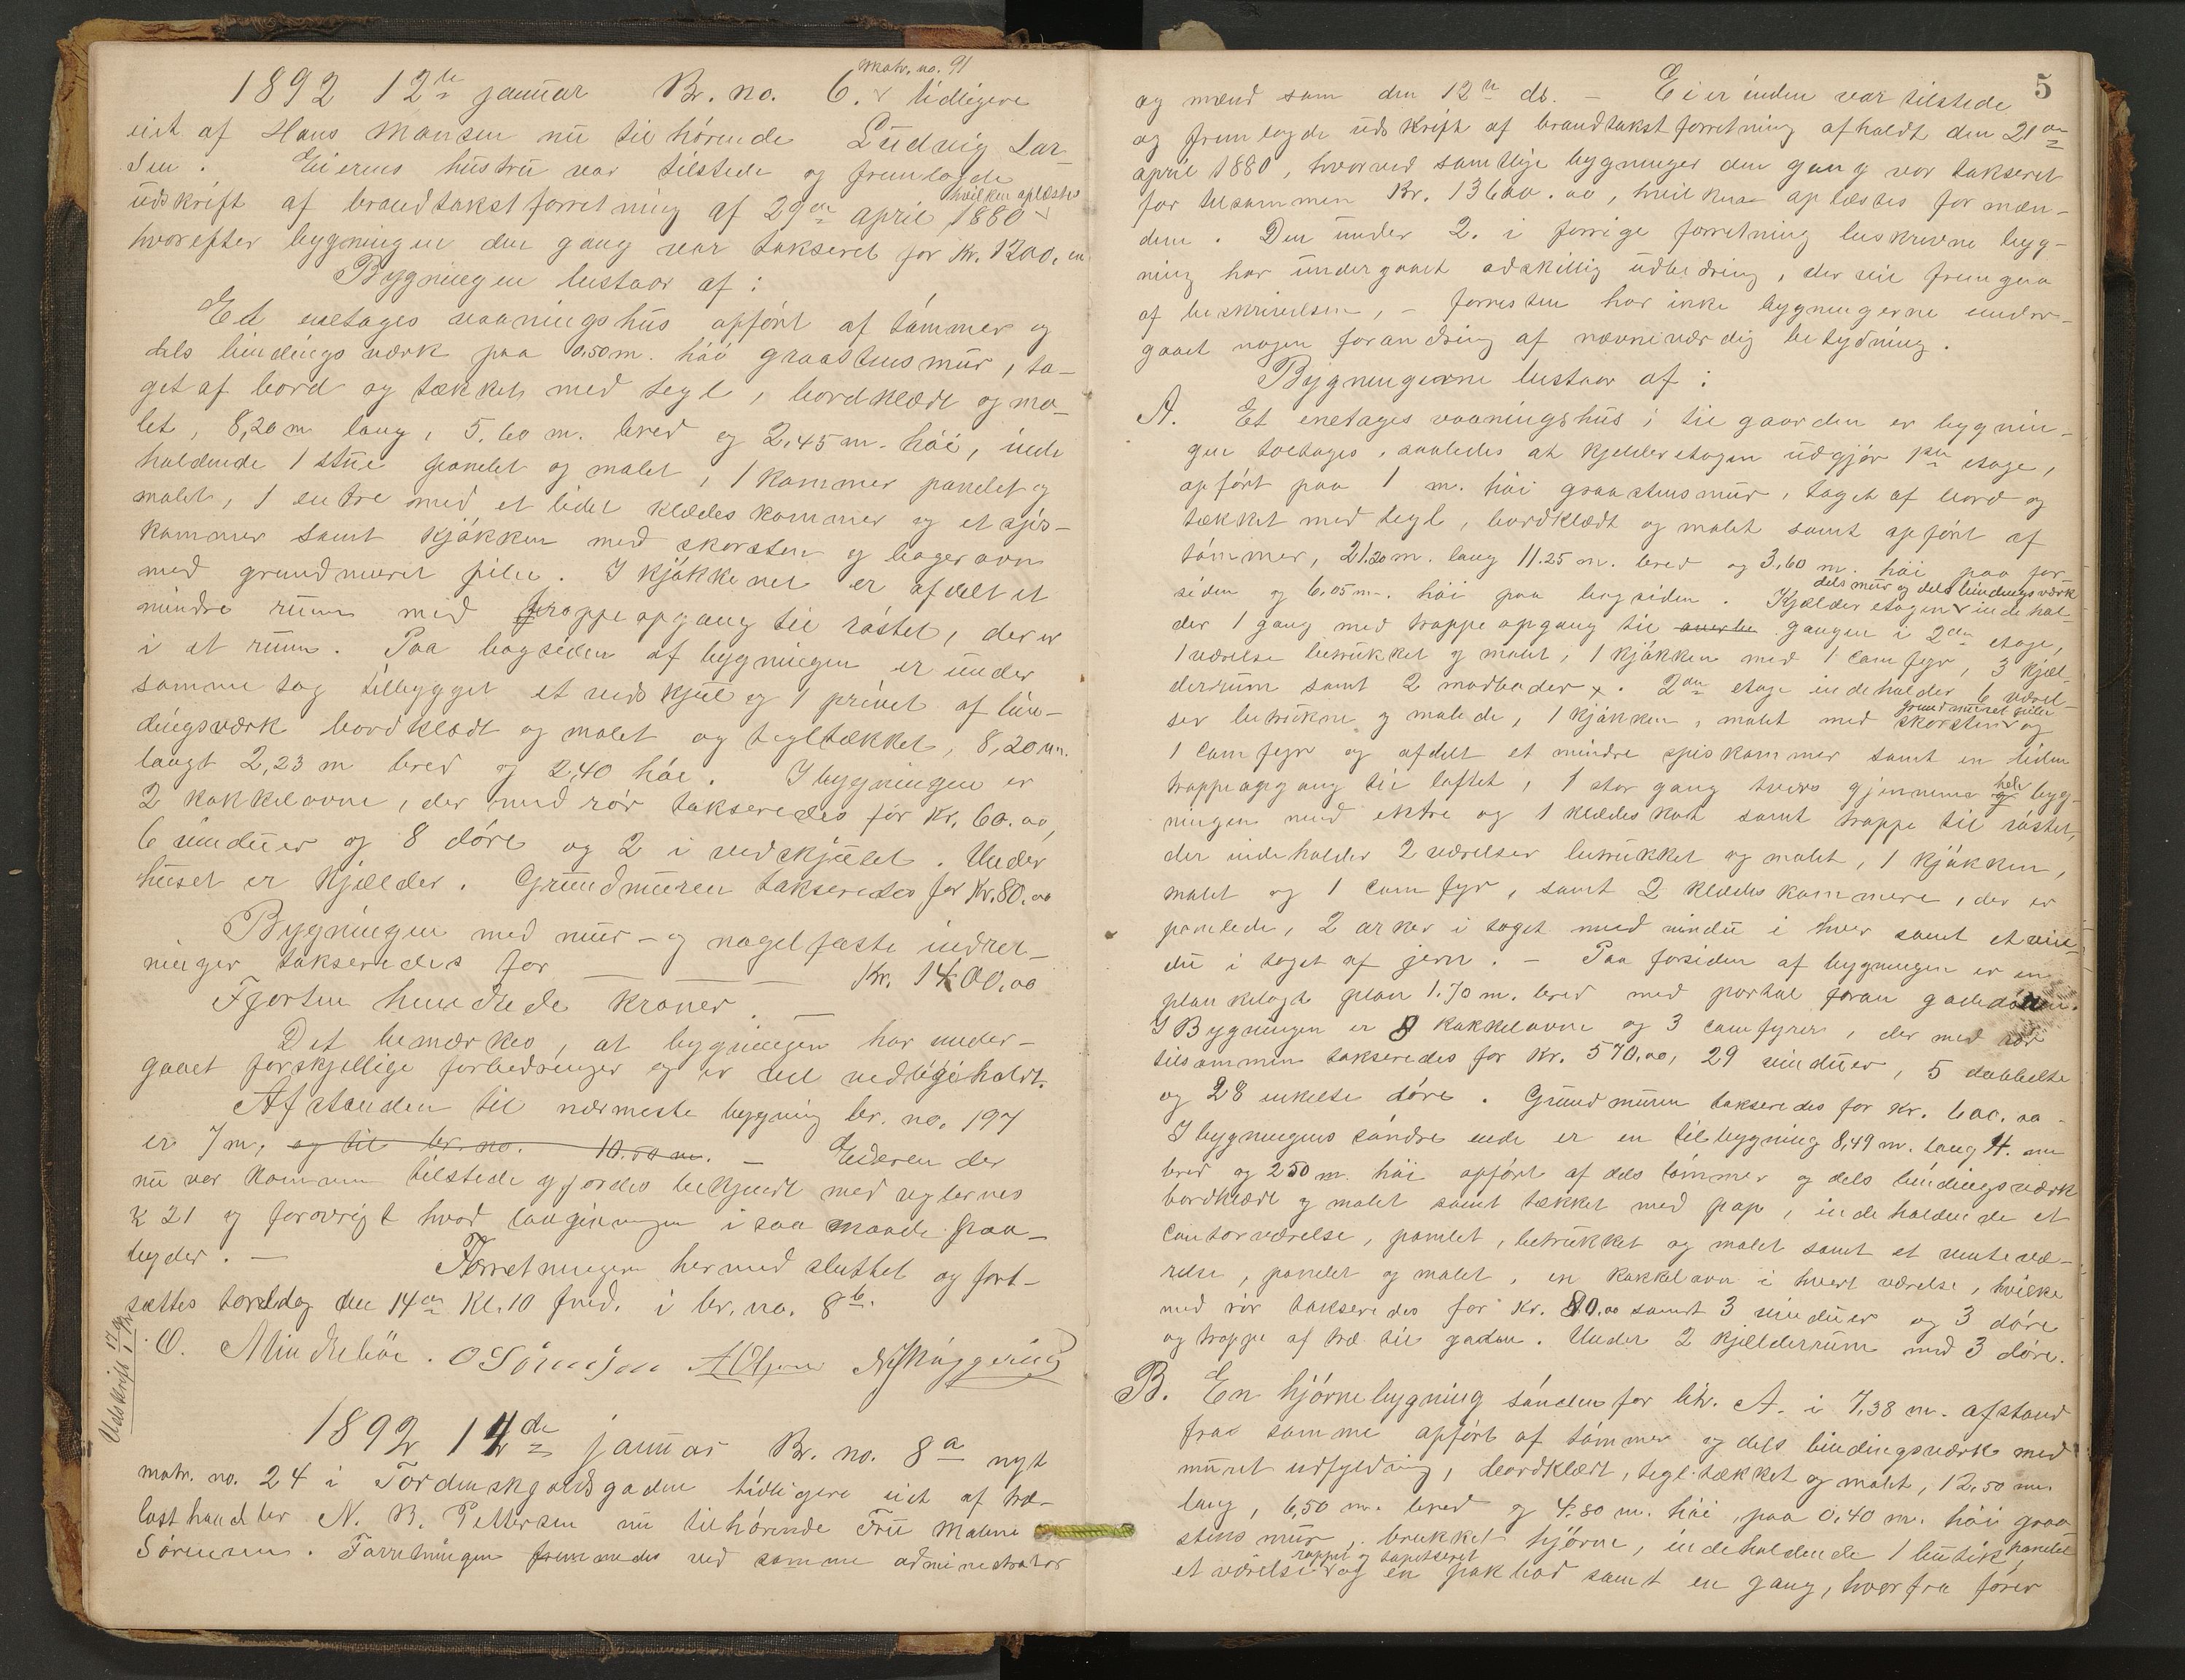 1892 12te januar Br. no. 6. matr. no. 91 tidligere
eiet af Hans Monsen nu tilhørende Ludvig Lar-
sen. Eierens hustru var tilstede og fremlagde
udskrift af brandtakstforretning af 29de april 1880 hvilken oplæstes
hvorefter bygningen den gang var takseret for Kr. 1200.00
Bygningen bestaar af:
Et enetages vaaningshus opført af tømmer og
dels bindingsværk paa 0,50 m. høi graastensmur, ta-
get af bord og tækket med tegl, bordklædt og ma-
let, 8,20 m lang, 5.60 m. bred og 2,45 m. høi, inde
holdende 1 stue panelet og malet, 1 kammer panelet og
malet, 1 entre med et lidet klædeskammer og et spis-
kammer samt kjøkken med skorsten og bagerovn
med grundmuret pibe. I kjøkkenet er afdelt et
mindre rum med trappeopgang til røstet, der er
i et rum. Paa bagsiden af bygningen er under
samme tag tilbygget et vedskjul og 1 privet af bin-
dingsværk bordklædt og malet og tegltækket, 8,20 m.
langt 2,23 m bred og 2,40 høi. I bygningen er
2 kakkelovne, der med rør takseredes for Kr. 60.00,
6 vinduer og 8 døre og 2 i vedskjulet. Under
huset er kjælder. Grundmuren takseredes for Kr. 80.00
Bygningen med mur- og nagelfaste indret-
ninger takseredes for — Kr. 1400.00
Fjorten hundrede kroner. —
Det bemærkes, at bygningen har under-
gaaet forskjellige forbedringer og er vel vedligeholdt.
Afstanden til nærmeste bygning br. no. 197
er 7 m, og til br. no. 10.00 m. — Eieren der
nu var kommen tilstede gjordes bekjendt med reglernes
§ 21 og forøvrigt hvad lovgivningen i saa maade paa-
byder. —
Forretningen hermed sluttet og fort-
sættes torsdag den 14de Kl. 10 fmd. i br. no. 8b.
Udskrift
O. Mindrebøe. O Tønnesen A Olsen
1892 14de januar Br. no. 8a nyt
matr. no. 24 i Tordenskjoldsgaden tidligere eiet af træ-
lasthandler N. B. Pettersen nu tilhørende Fru Maline
Sørensen. Forretningen fremmedes ved samme administrator
5
og mænd som den 12te ds. — Eierinden var tilstede
og fremlagde udskrift af brandtakstforretning afholdt den 21de
april 1880, hvorved samtlige bygninger den gang var takseret
for tilsammen Kr. 13600.00, hvilken oplæstes for mæn-
dene. Den under 2. i forrige forretning beskrevne byg-
ning har undergaaet adskillig udbedring, der vil fremgaa
af beskrivelsen, – forresten har ikke bygningerne under-
gaaet nogen forandring af nævneværdig betydning.
Bygningerne bestaar af:
A. Et enetages vaaningshus; til gaarden er bygnin-
gen toetages, saaledes at kjelderetagen udgjør 1ste etage,
opført paa 1 m. høi graastensmur, taget af bord og
tækket med tegl, bordklædt og malet samt opført af
tømmer, 21.20 m. lang 11.25 m. bred og 3,60 m. høi paa for-
siden og 6,05 m. høi paa bagsiden. Kjælderetagen dels mur og dels bindingsværk indehol-
der 1 gang med trappeopgang til gangen i 2den etage,
1 værelse betrukket og malet, 1 kjøkken med 1 comfyr, 3 kjæl-
derrum samt 2 madboder. 2den etage indeholder 6 værel-
ser betrukne og malede, 1 kjøkken, malet med skorsten grundmuret pibe og
1 comfyr og afdelt et mindre spiskammer samt en liden
trappeopgang til loftet, 1 stor gang tvers gjennem hele byg-
ningen med entre og 1 klædeskot samt trappe til røstet,
der indeholder 2 værelser betrukket og malet, 1 kjøkken,
malet og 1 comfyr, samt 2 klædeskammere, der er
panelede, 2 arker i taget med vindu i hver samt et vin-
du i taget af jern. — Paa forsiden af bygningen er en
plankelagt plan 1.70 m. bred med portal foran gadedøren.
I Bygningen er 8 kakkelovne og 3 comfyrer, der med rør
tilsammen takseredes for Kr. 570.00, 29 vinduer, 5 dobbelte
og 28 enkelte døre. Grundmuren takseredes for Kr. 600.00
I bygningens søndre ende er en tilbygning 8,49 m. lang 4. m
bred og 250 m. høi opført af dels tømmer og dels bindingsværk
bordklædt og malet samt tækket med pap, indeholdende et
contorværelse, panelet, betrukket og malet samt et ventevæ-
relse, panelet og malet, en kakkelovn i hvert værelse, hvilke
med rør takseredes for Kr. 80.00 samt 3 vinduer og 3 døre
og trappe af træ til gaden. Under 2 kjælderrum med 3 døre.
B. En hjørnebygning sønden for litr. A. i 7,38 m. afstand
fra samme opført af tømmer og dels bindingsværk med
muret udfyldning, bordklædt, tegltækket og malet, 12,50 m.
lang, 6,50 m. bred og 4.80 m. høi, paa 0,40 m. høi graa-
stens mur, brukket hjørne, indeholdende 1 butik, panelet
et værelse rappet og tapetseret og en pakbod samt en gang, hvorfra fører